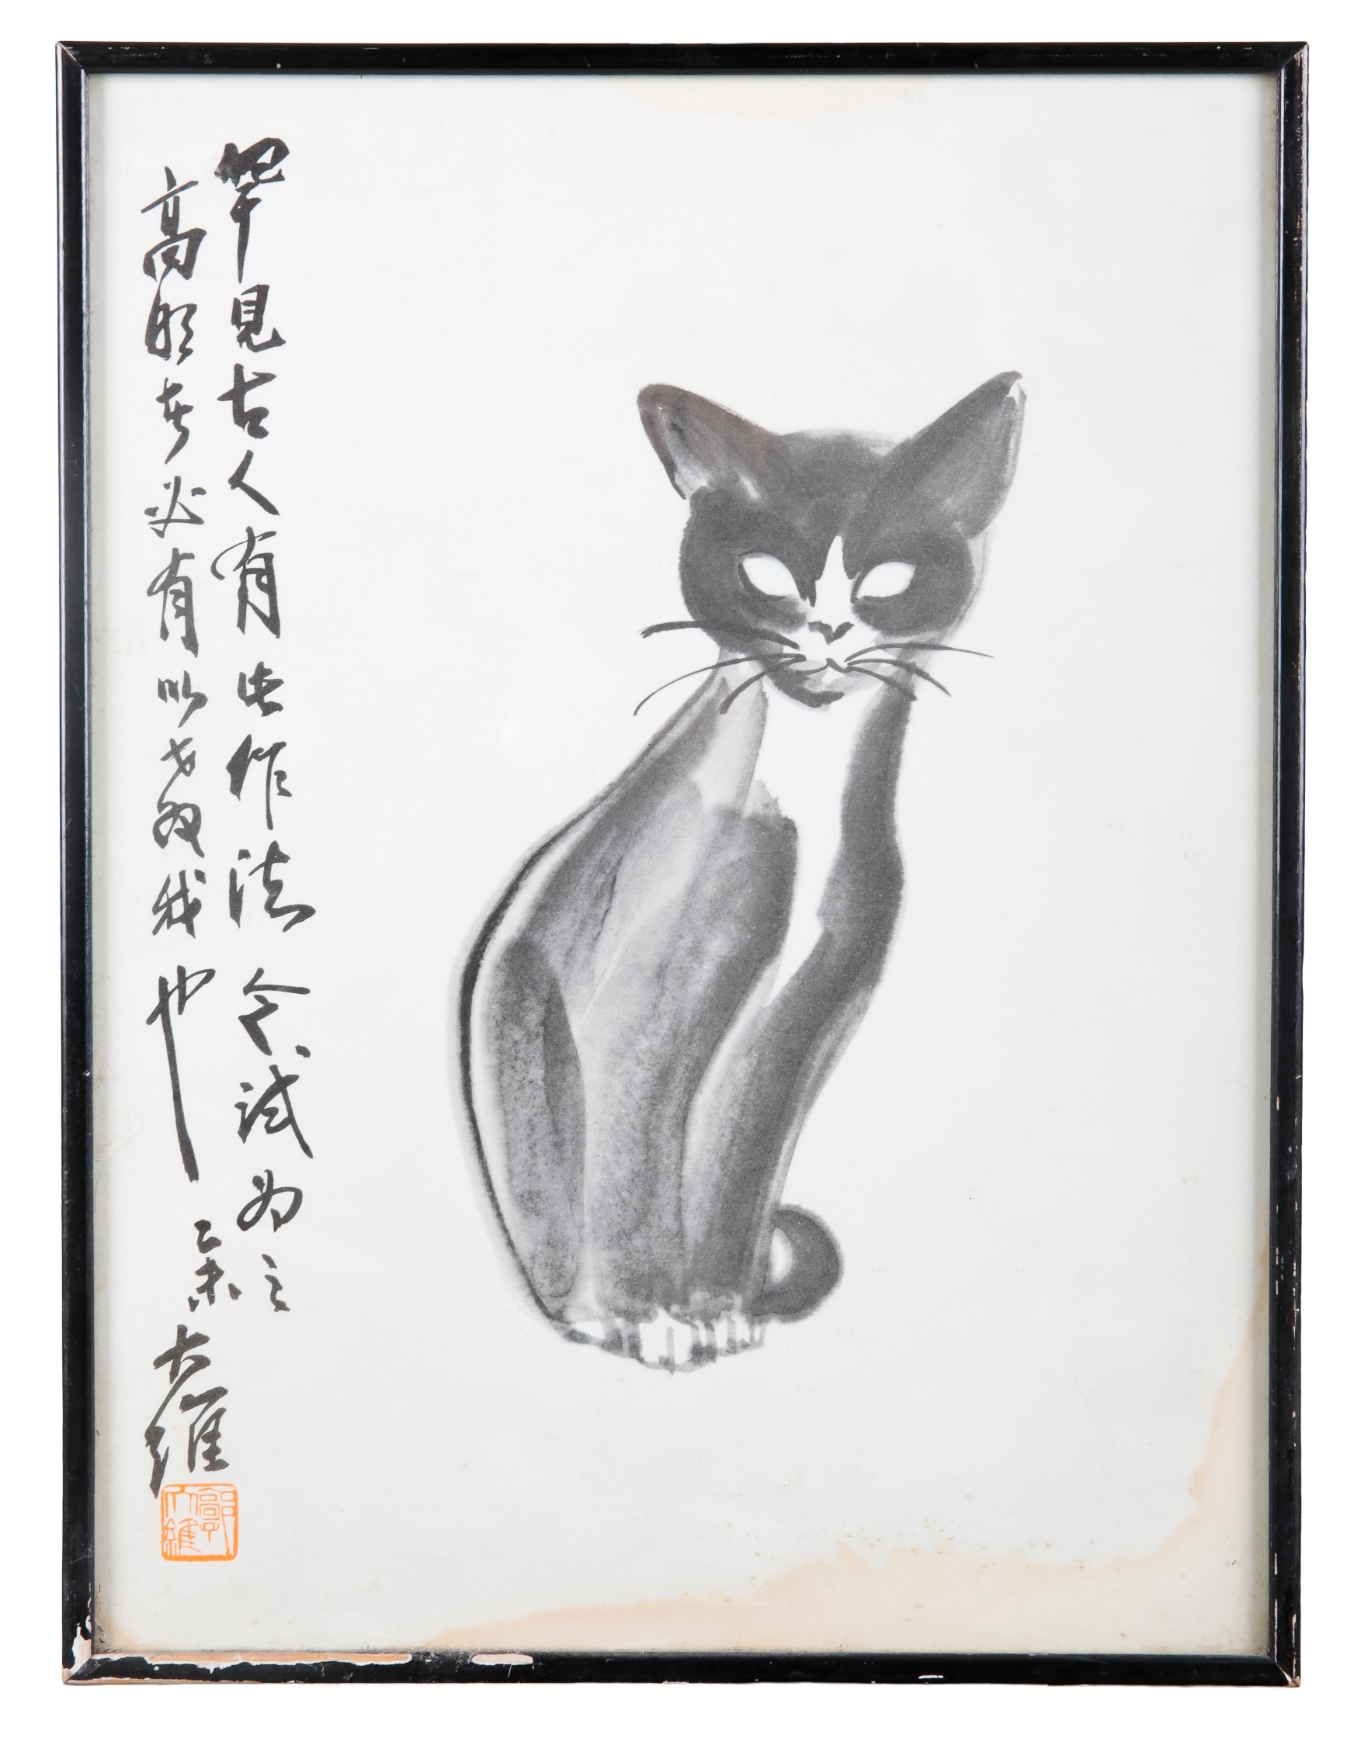 罕見古人有此作法今試為之
高明者必有以教我也
乙未大維
郭大維